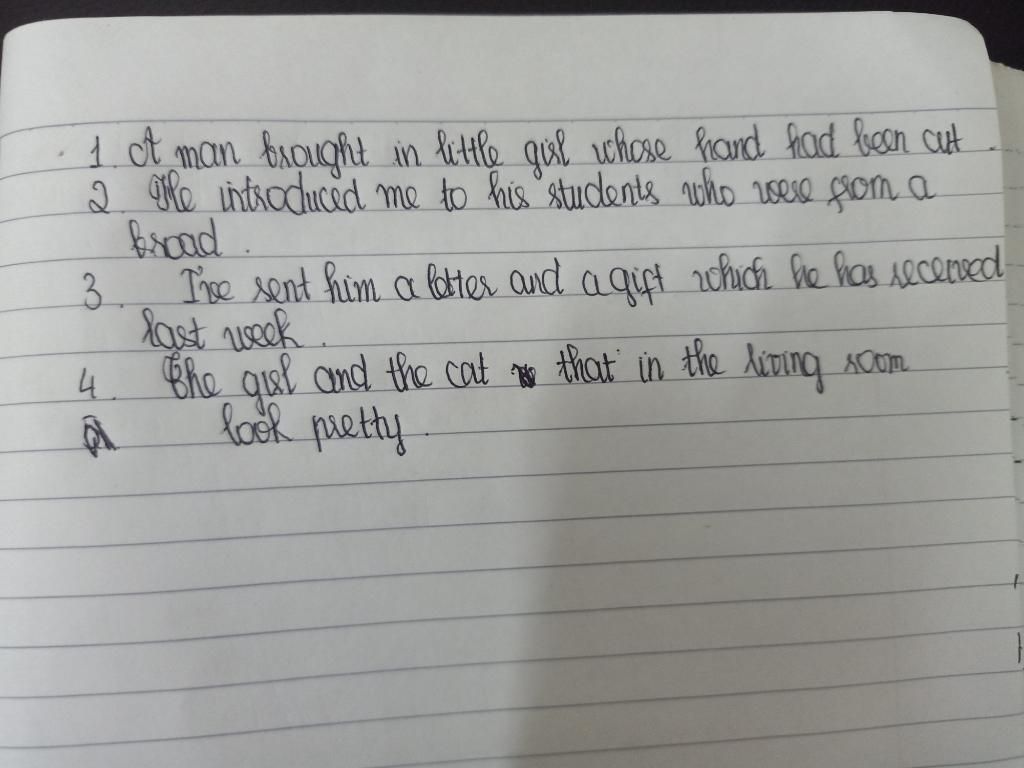 1. A man brought in little girl whose hand had been cut.
2 He introduced me to his students who were from a
broad.
3. I've sent him a letter and a gift which he has received
last week.
4. The girl and the cat that in the living room
look pretty.